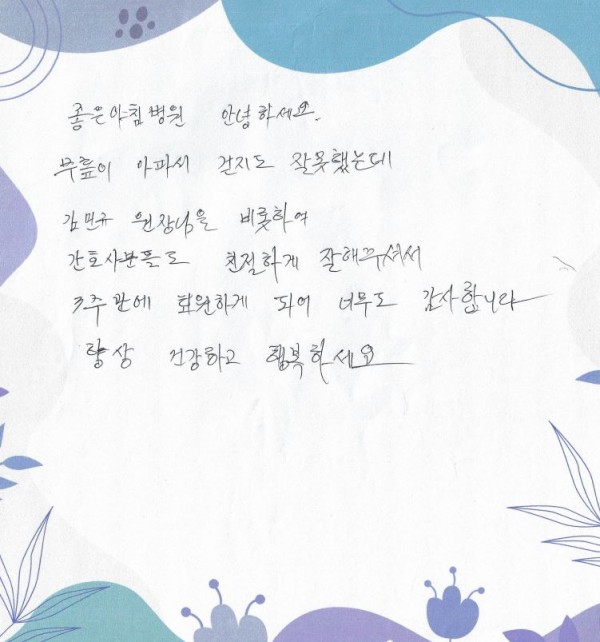 좋은아침병원 안녕하세요.
무릎이 아파서 걷지도 잘못했는데
김민규 원장님을 비롯하여
간호사분들도 친절하게 잘해주셔서
3주만에 퇴원하게 되어 너무도 감사합니다
항상 건강하고 행복하세요